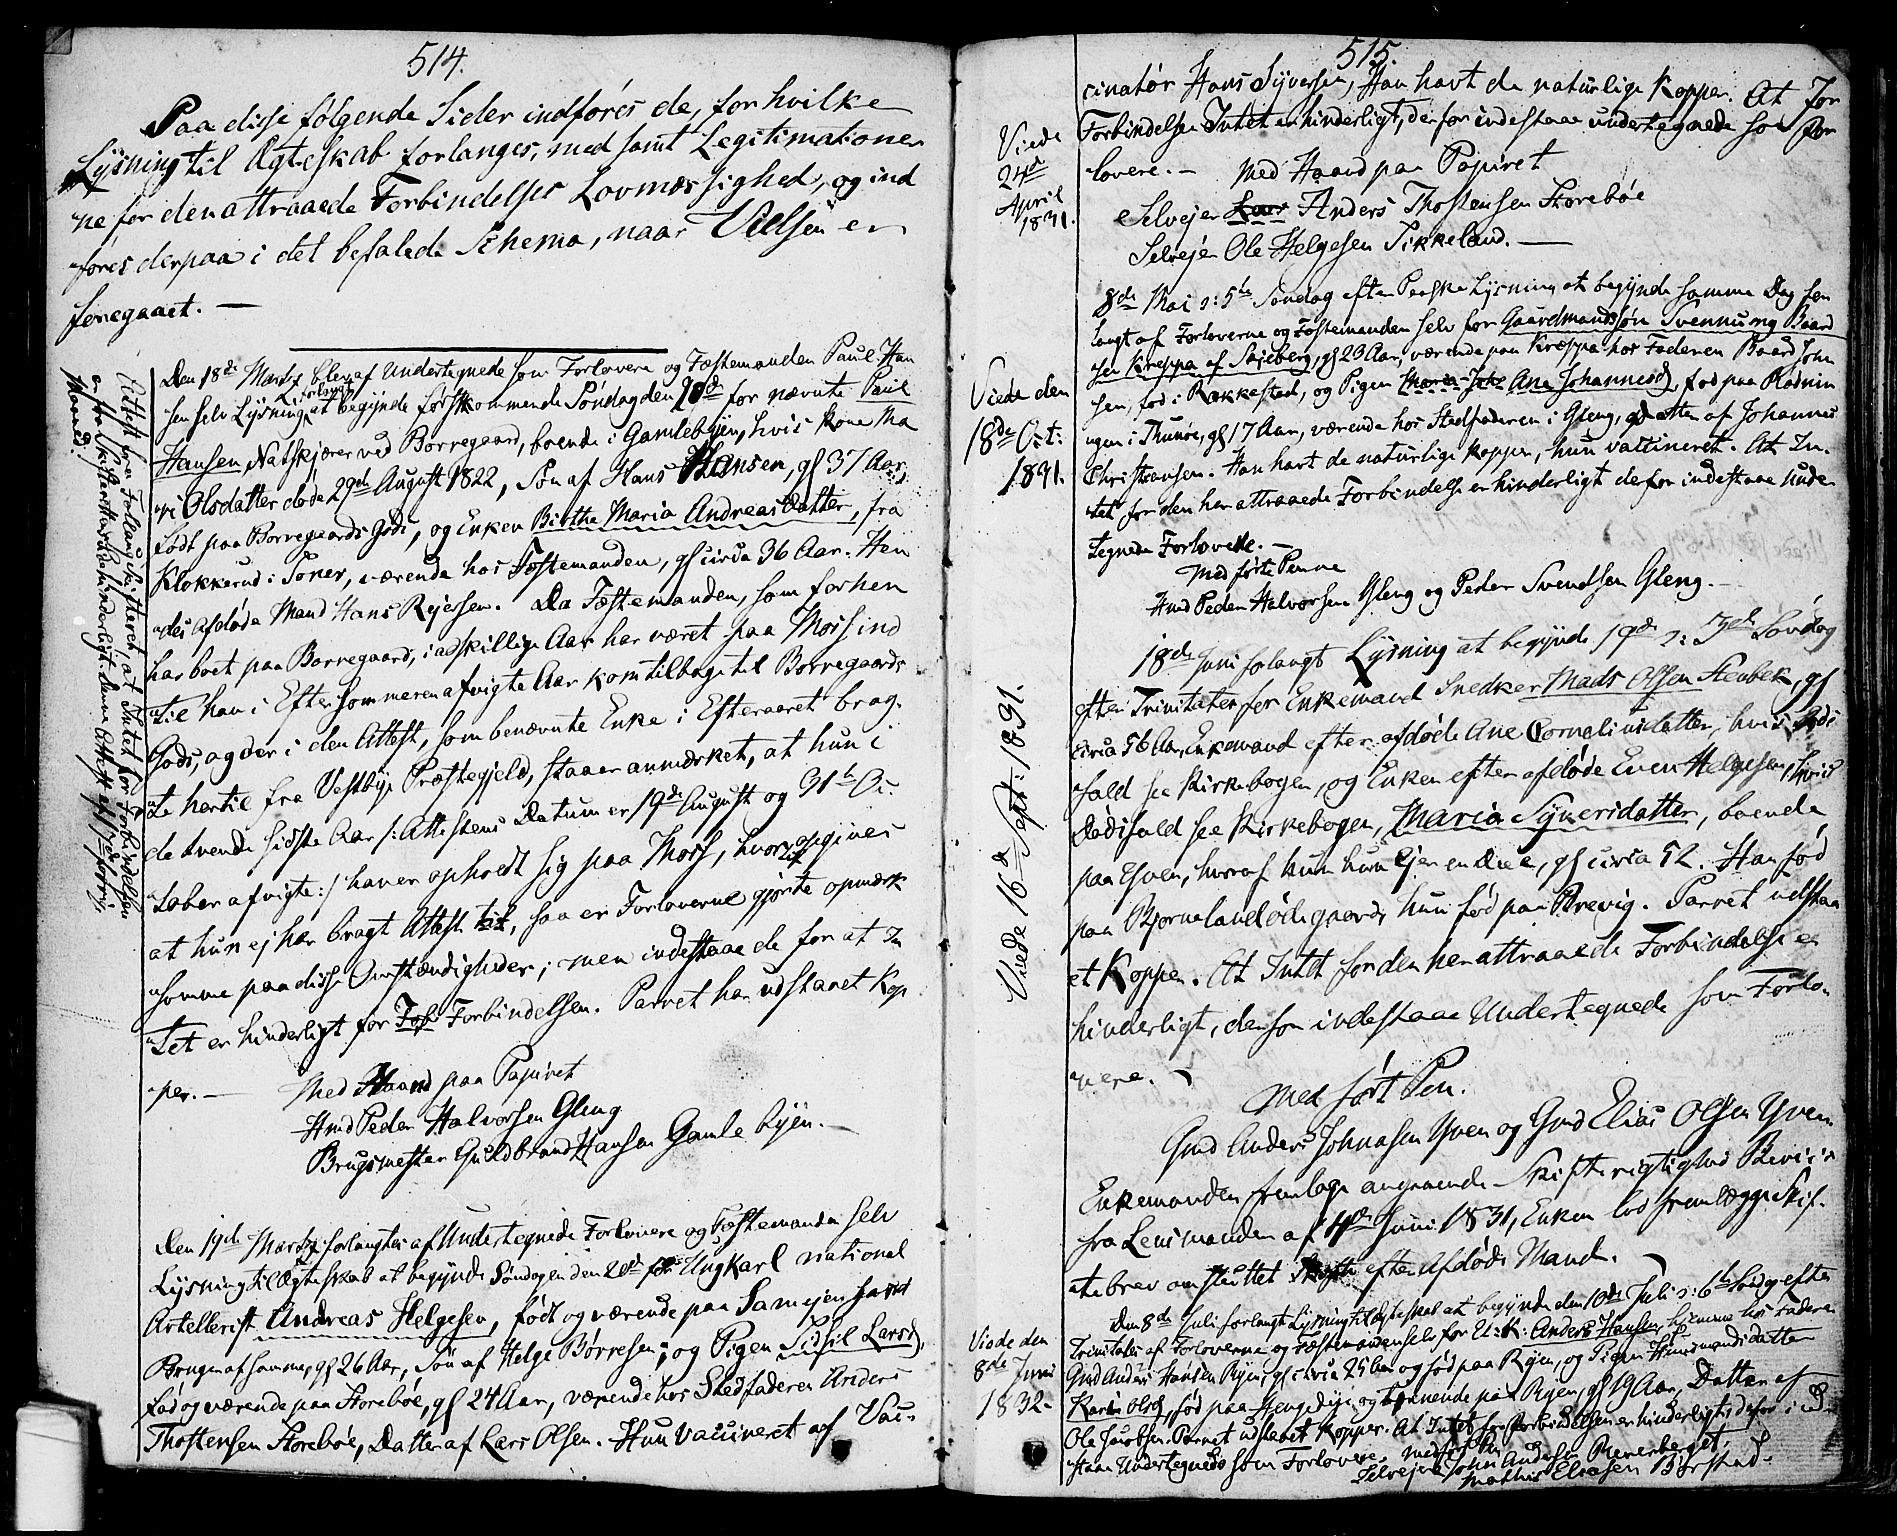 514.
Paa disse følgende Sider indføres de, for hvilke
Lysning til Ægteskab forlanges, med samt Legitimationer
ne for den attraaede Forbindelses Lovmæssighed, og ind
føres derpaa i det befalede Schema, naar Vielsen er
foregaaet. —
Den 18de Marts blev af Undertegnede som Forlovere og Fæstemanden Paul Han
sen selv Lysning forlangt at begynde førstkommende Søndag den 20de for nævnte Paul
Hansen Natskjærer ved Borregaard, boende i Gamlebyen, hvis Kone Ma
ri Olsdatter døde 29de August 1822, Søn af Hans Hansen, gl 37 Aar,
født paa Borregaards Gods, og Enken Birthe Maria Andreasdatter, fra
Klokkerud i Soner, værende hos Fæstemanden, gl circa 36 Aar. Hen
des afdøde Mand Hans Rejersen. Da Fæstemanden, som forhen
har boet paa Borregaard, i adskillige Aar har været paa Moss ind
til han i Eftersommeren afvigte Aar kom tilbage til Borregaards
Gods, og der i den Attest, som benævnte Enke i Efteraaret brag-
te hertil fra Vestbye Præstegjeld, staaer anmærket, at hun i
de tvende sidste Aar /: Attestens Datum er 19de August og 31te Oc-
tober afvigte :/ haver opholdt sig paa Moss, hvor opgives
at hun ej har bragt Attest, saa er Forloverne gjorte opmærk
somme paa disse Omstændigheder; men indestaae de for at In
tet er hinderligt for Forbindelsen. Parret har udstaaet Kop
per. —
Med Haand paa Papiret
Hmd Peder Halvorsen Gleng
Brugsmester Guldbrand Hansen Gamle Byen. —
Attest fra Forlaug Skifteret, at Intet for Forbindelsen
er fra Skifterettens Side hinderligt. Denne Attest af 17de forrige
Maaned.
Den 19de Marts forlangtes af Undertegnede Forlovere og Fæstemanden selv
Lysning til Ægteskab at begynde Søndagen den 20de for Ungkarl national
Artellerist Andreas Helgesen, født og værende paa Samejen samt
Bruger af samme, gl 26 Aar, Søn af Helge Børresen; og Pigen Sidsil Larsd,
født og værende paa Storebøe, gl 24 Aar, værende hos Stedfaderen Anders
Thostensen Storebøe, Datter af Lars Olsen. Hun vacineret af Vac-
515.
cinatør Hans Syversen, Han havt de naturlige Kopper. At for
Forbindelsen Intet er hinderligt, derfor indestaae undertegnede som For
lovere. — Med Haand paa Papiret
Selvejer Lars Anders Thostensen Storebøe
Selvejer Ole Helgesen Sikkeland. —
Viede
24de
April
1831.
8de Mai ɔ: 5te Søndag efter Paaske Lysning at begynde samme Dag for
langt af Forloverne og Fæstemanden selv for Gaardmandssøn Svennung Baard
sen Kreppa af Skieberg, gl 23 Aar, værende paa Kreppa hos Faderen Baard John
sen, fød i Rakkestad, og Pigen Ane Johannesd, fød paa Rødnin
ngen i Thunøe, gl 17 Aar, værende hos Stedfaderen i Gleng, Datter af Johannes
Christensen. Han havt de naturlige Kopper, hun vaccineret. At In-
tet for den her attraaede Forbindelse er hinderligt derfor indestaae Under
tegnede Forlovere. —
Med førte Penne
Hmd Peder Halvorsen Gleng og Peder Svendsen Gleng. —
Viede den
18de Oct:
1831.
18de Juni forlangt Lysning at begynde 19de ɔ: 3de Søndag
efter Trinitatis for Enkemand Snedker Mads Olsen Stenbek, gl
circa 56 Aar, Enkemand efter afdøde Ane Cornelius datter, hvis Døds
fald see Kirkebogen, og Enken efter afdøde Even Helgesen, hvis
Dødsfald see Kirkebogen, Maria Syversdatter, boende
paa Yven, hvoraf hun Ejer en Deel, gl circa 52. Han fød
paa Bjørnelandødegaard, hun fød paa Brevig. Parret udstaa
et Kopper. At Intet for den her attraaede Forbindelse er
hinderligt, derfor indestaae Undertegnede som Forlo-
vere. —
Med ført Pen.
Gmd Anders Johnasen Yven og Gmd Elias Olsen Yven.
Enkemanden fremlage angaaende Skifterigtighed Beviis
fra Lensmanden af 4de Juni 1831, Enken lod fremlægge Skif-
tebrev om sluttet Skifte efter Afdøde Mand. —
Viede 16de Sept: 1831.
Den 8de Juli forlangt Lysning til Ægteskab at begynde den 10de Juli ɔ: 6te Søndag efter
Trinitatis af Forloverne og Fæstemanden selv for U: K: Anders Hansen, hjemme hos Faderen
Gmd Anders Hansen Ryen, gl circa 25 Aar og fød paa Ryen, og Pigen Huusmandsdatter
Karin Olsd, fød paa og tjenende paa Ryen, gl 19 Aar, Datter af
Ole Jacobsen. Parret udstaaet Kopper. At Intet for Forbindelsen er hinderligt derfor i
staae Undertegnede som Forlovere. Med ført Pen
Selvejer John Andersen Reverberget,
Mathis Eliasen Børstad.
Viede den
8de Juni
1832.